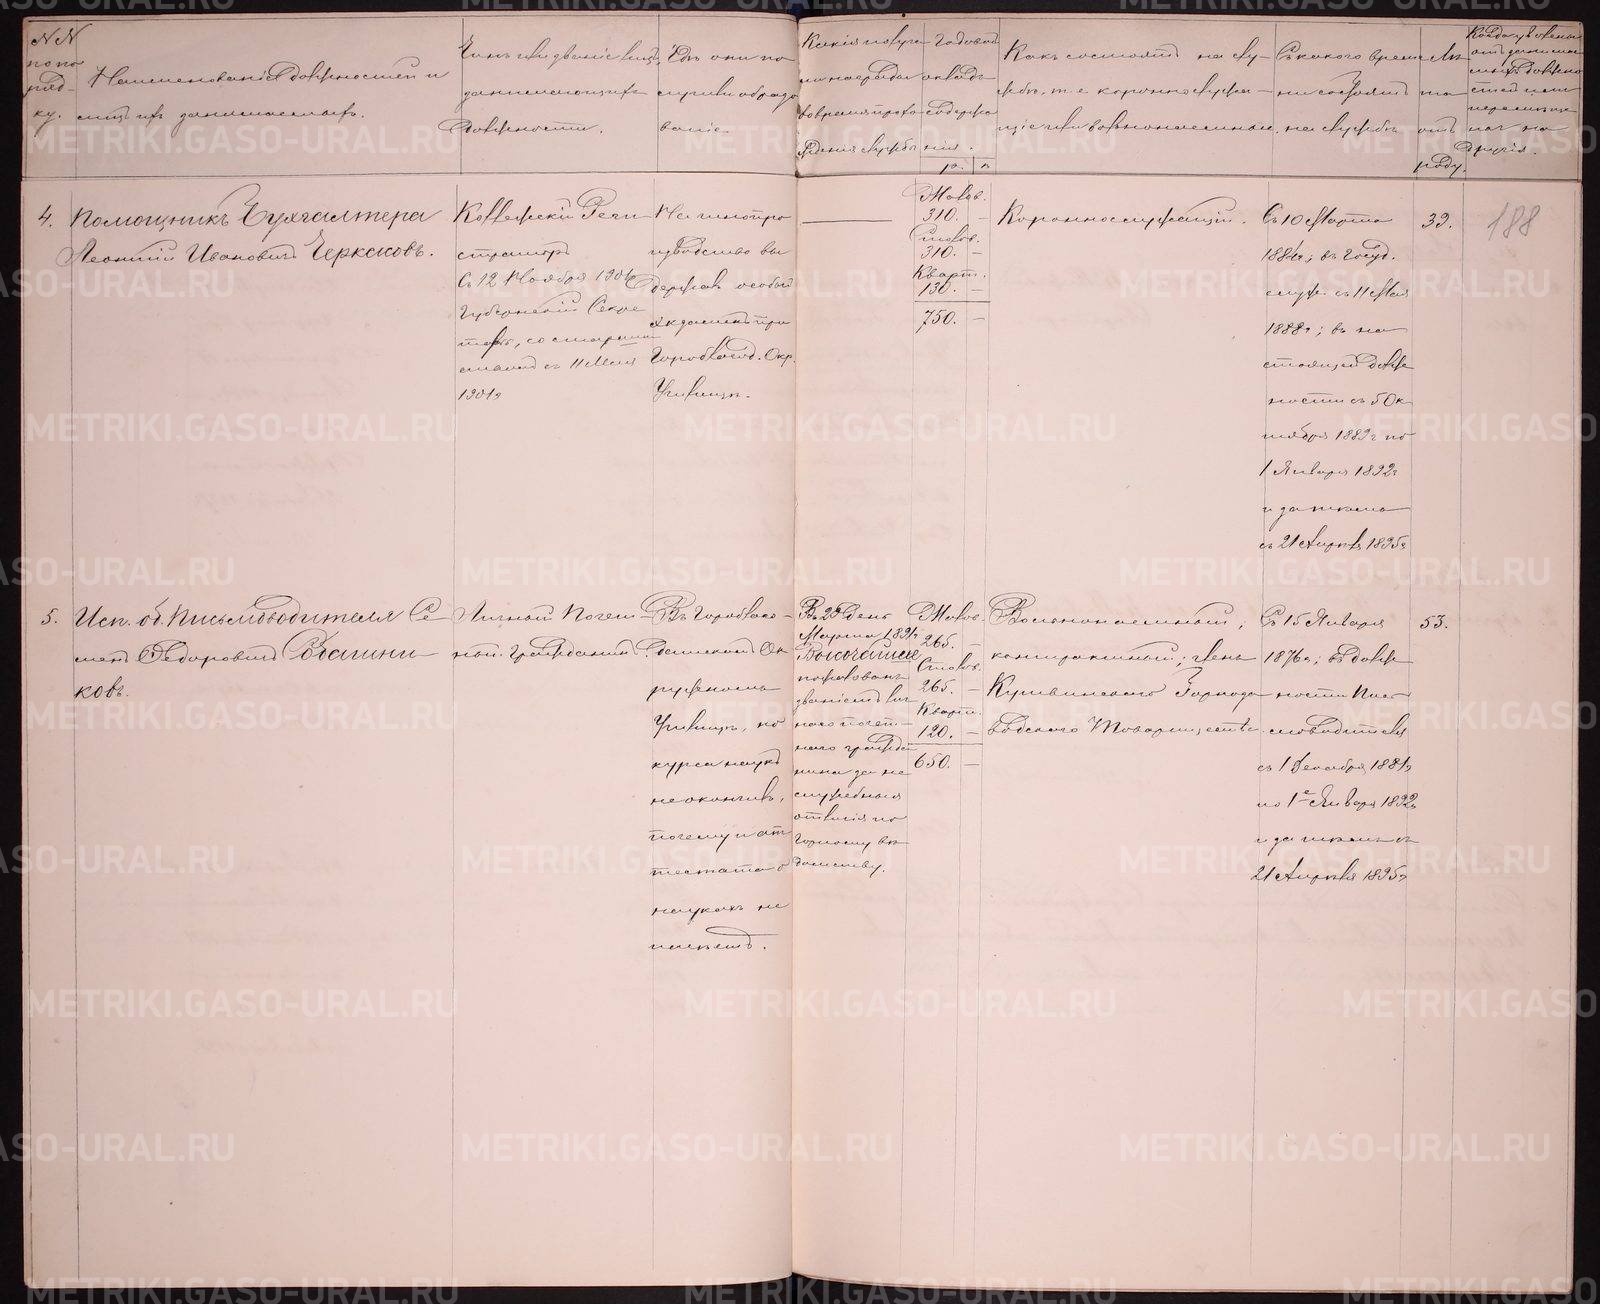 NN
по по
ряд-
ку.
Наименованіе должностей и
лицъ ихъ занимающихъ.
Чинъ или званіе лицъ,
занимающихъ
должности.
Гдѣ они по
лучили образо
ваніе.
Какія получа
ли награды
во время прохо
жденія службы
Годовой
окладъ
содержа
нія.
р. к
Какъ состоятъ на слу-
жбѣ, т. е. короннослужа-
щіе или вольнонаемные.
Съ какого време
ни состоятъ
на службѣ
Лѣ
та
отъ
роду.
4. Помощникъ Бухгалтера
Леонтій Ивановичъ Черкасовъ.
Коллежскій Реги
страторъ
Съ 12 Ноября 1901г
Губернскій Секре
тарь, со старшин
ствомъ съ 11 Мая
1901г
На чинопро
изводство вы
держав особый
экзаменъ при
Гороблагод. Окр.
Училищѣ.
Жалов.
310. –
Столов.
310. –
Кварт.
130. –
750. –
Короннослужащій.
Съ 10 Марта
1884г; въ Госуд.
служ. съ 11 Мая
1888г; въ на
стоящей долж
ности съ 5 Ок
тября 1889г по
1 Января 1892г
и затѣмъ
съ 21 Апрѣля 1895г
39.
188
5. Исп. об. Письмоводителя Се
менъ Федоровичъ Собанини
ковъ.
Личный Почет-
ный Гражданин.
Въ Гороблаго-
датскомъ Ок
ружномъ
Училищѣ, но
курса наукъ
не окончивъ,
почему и ат
тестата о
наукахъ не
имѣетъ.
Въ 25 день
Марта 1891г
Высочайше
пожалованъ
званіемъ лич
наго почет-
наго гражда
нина за не
служебныя
отличія по
Горному вѣ
домству.
Жалов.
265.
Столов.
265. –
Кварт.
120. –
650. –
Вольнонаемный,
контрактный; членъ
Кушвинскаго Горноза
водскаго Товариществ.
Съ 15 Января
1876г; въ долж
ности Пись
моводителя
съ 1 Декабря 1881г
по 1е Января 1892г
и затѣмъ съ
21 Апрѣля 1895г
53.
METRIKI.GASO-URAL.RU